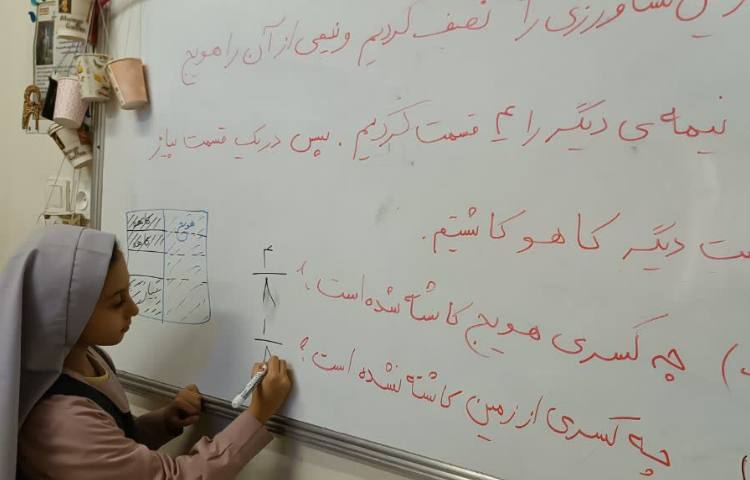 کشاورزی را نصف کردیم و نیمی از آن را هویج
نیمه ی دیگر را ۴ قسمت کردیم . پس در یک قسمت پیاز
دیگر کاهو کاشتیم.
چه کسری هویج کاشته شده است ؟
چه کسری از زمین کاشته نشده است ؟
هویج
کاهو
کاهو
۴
۸
۱
۸